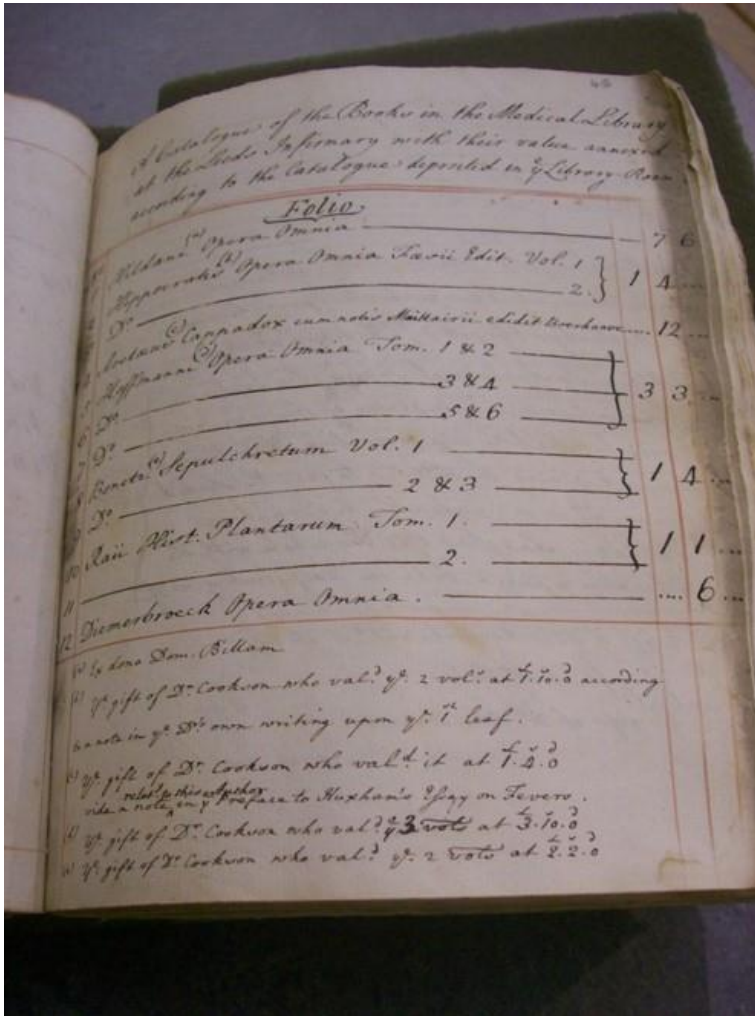 48
A Catalogue of the Books in the Medical Library
at the Leeds Infirmary with their value annexed
according to the Catalogue deposited in yͤ Library Room
Folio
1 Hildani (a) Opera Omnia 7 6
2 Hippocratis (b) Opera Omnia Fœvii Edit. Vol. 1 } 1 4 ...
3 Dᵒ 2. }
4 Aretæus (c) Cappadox cum notis Maittairii edidit Boerhaave .... 12 ...
5 Hoffmanni (d) Opera Omnia Tom. 1 & 2 } 3 3 ...
6 Dᵒ 3 & 4
7 Dᵒ 5 & 6 }
8 Boneti (e) Sepulchretum Vol. 1 } 1 4 ...
9 Dᵒ 2 & 3 }
10 Raii Hist. Plantarum Tom. 1. } 1 1 ...
11 2. }
12 Diemerbroeck Opera Omnia. .... 6 ...
(a) Ex dono Dom. Billam
(b) yᵉ gift of Dʳ Cookson who valᵈ yᵉ 2 volˢ at £1.10.0 according
to a note in yᵉ Dʳˢ own writing upon yᵉ 1ˢᵗ leaf.
(c) yᵉ gift of Dʳ Cookson who valᵈ it at £1.4.0
relatᵍ to this Author
vide a note ‸ in yᵉ Preface to Huxham's Essay on Fevers.
(d) yᵉ gift of Dʳ Cookson who valᵈ yᵉ 3 vols at £3.10.0
(e) yᵉ gift of Dʳ Cookson who valᵈ yᵉ 2 vols at £2.2.0